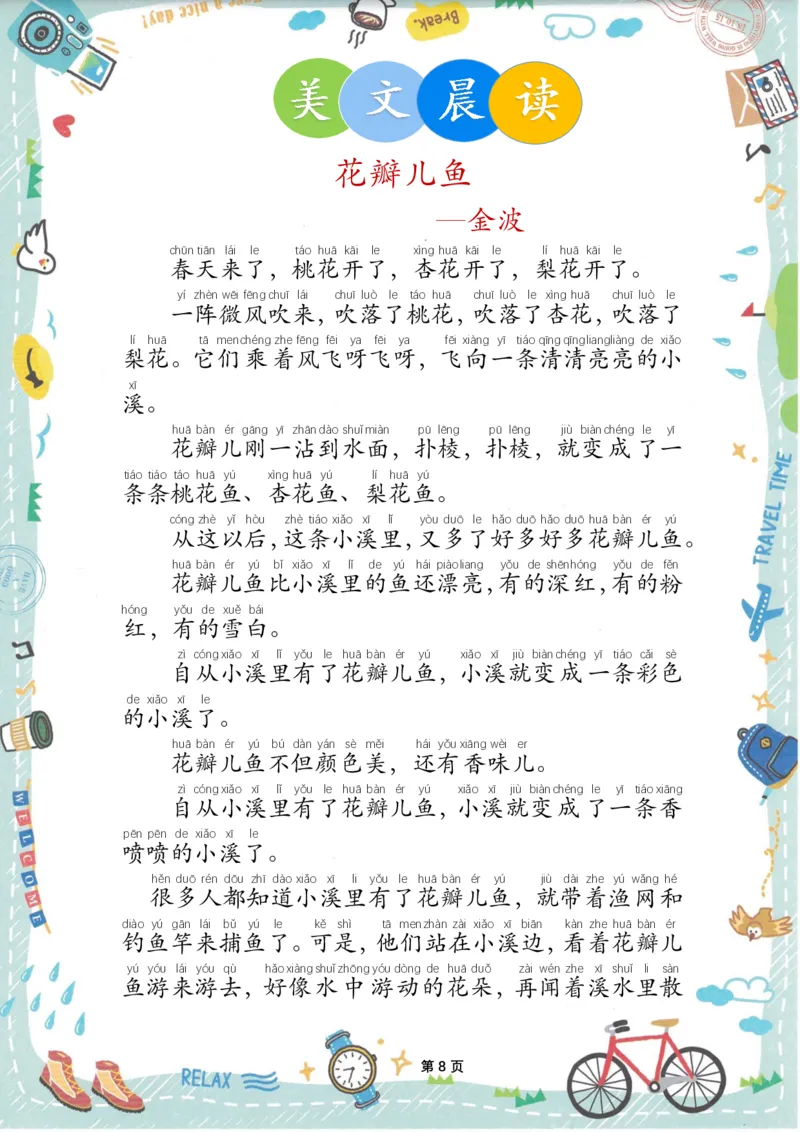 Have a nice day!
Break.
美文晨读
花瓣儿鱼
—金波
chūn tiān lái le táo huā kāi le xìng huā kāi le lí huā kāi le
春天来了，桃花开了，杏花开了，梨花开了。
yí zhèn wēi fēng chuī lái chuī luò le táo huā chuī luò le xìng huā chuī luò le
一阵微风吹来，吹落了桃花，吹落了杏花，吹落了
lí huā tā men chéng zhe fēng fēi ya fēi ya fēi xiàng yī tiáo qīng qīng liang liàng de xiǎo
梨花。它们乘着风飞呀飞呀，飞向一条清清亮亮的小
xī
溪。
huā bàn ér gāng yī zhān dào shuǐ miàn pū lēng pū lēng jiù biàn chéng le yī
花瓣儿刚一沾到水面，扑棱，扑棱，就变成了一
tiáo tiáo táo huā yú xìng huā yú lí huā yú
条条桃花鱼、杏花鱼、梨花鱼。
cóng zhè yǐ hòu zhè tiáo xiǎo xī lǐ yòu duō le hǎo duō hǎo duō huā bàn ér yú
从这以后，这条小溪里，又多了好多好多花瓣儿鱼。
huā bàn ér yú bǐ xiǎo xī lǐ de yú hái piào liang yǒu de shēn hóng yǒu de fěn
花瓣儿鱼比小溪里的鱼还漂亮，有的深红，有的粉
hóng yǒu de xuě bái
红，有的雪白。
zì cóng xiǎo xī lǐ yǒu le huā bàn ér yú xiǎo xī jiù biàn chéng yī tiáo cǎi sè
自从小溪里有了花瓣儿鱼，小溪就变成一条彩色
de xiǎo xī le
的小溪了。
huā bàn ér yú bú dàn yán sè měi hái yǒu xiāng wèi er
花瓣儿鱼不但颜色美，还有香味儿。
zì cóng xiǎo xī lǐ yǒu le huā bàn ér yú xiǎo xī jiù biàn chéng le yī tiáo xiāng
自从小溪里有了花瓣儿鱼，小溪就变成了一条香
pēn pēn de xiǎo xī le
喷喷的小溪了。
hěn duō rén dōu zhī dào xiǎo xī li yǒu le huā bàn ér yú jiù dài zhe yú wǎng hé
很多人都知道小溪里有了花瓣儿鱼，就带着渔网和
diào yú gān lái bǔ yú le kě shì tā men zhàn zài xiǎo xī biān kàn zhe huā bàn ér
钓鱼竿来捕鱼了。可是，他们站在小溪边，看着花瓣儿
yú yóu lái yóu qù hǎo xiàng shuǐ zhōng yóu dòng de huā duǒ zài wén zhe xī shuǐ li sàn
鱼游来游去，好像水中游动的花朵，再闻着溪水里散
TRAVEL TIME
WELCOME
RELAX
第 8 页